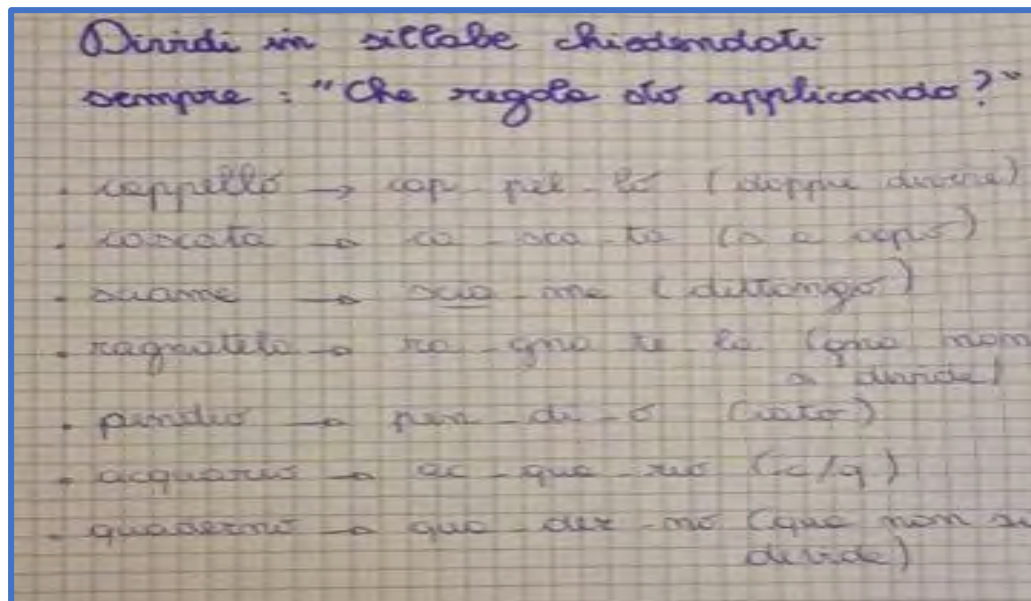 Dividi in sillabe chiedendoti
sempre: "Che regola sto applicando?"
. cappello → cap-pel-lo (doppie divise)
. cascata → ca-sca-ta (s a capo)
. sciame → scia-me (dittongo)
. ragnatela → ra-gna-te-la (gna non
si divide)
. pendio → pen-di-o (iato)
. acquario → ac-qua-rio (c/q)
. quaderno → qua-der-no (qua non si
divide)